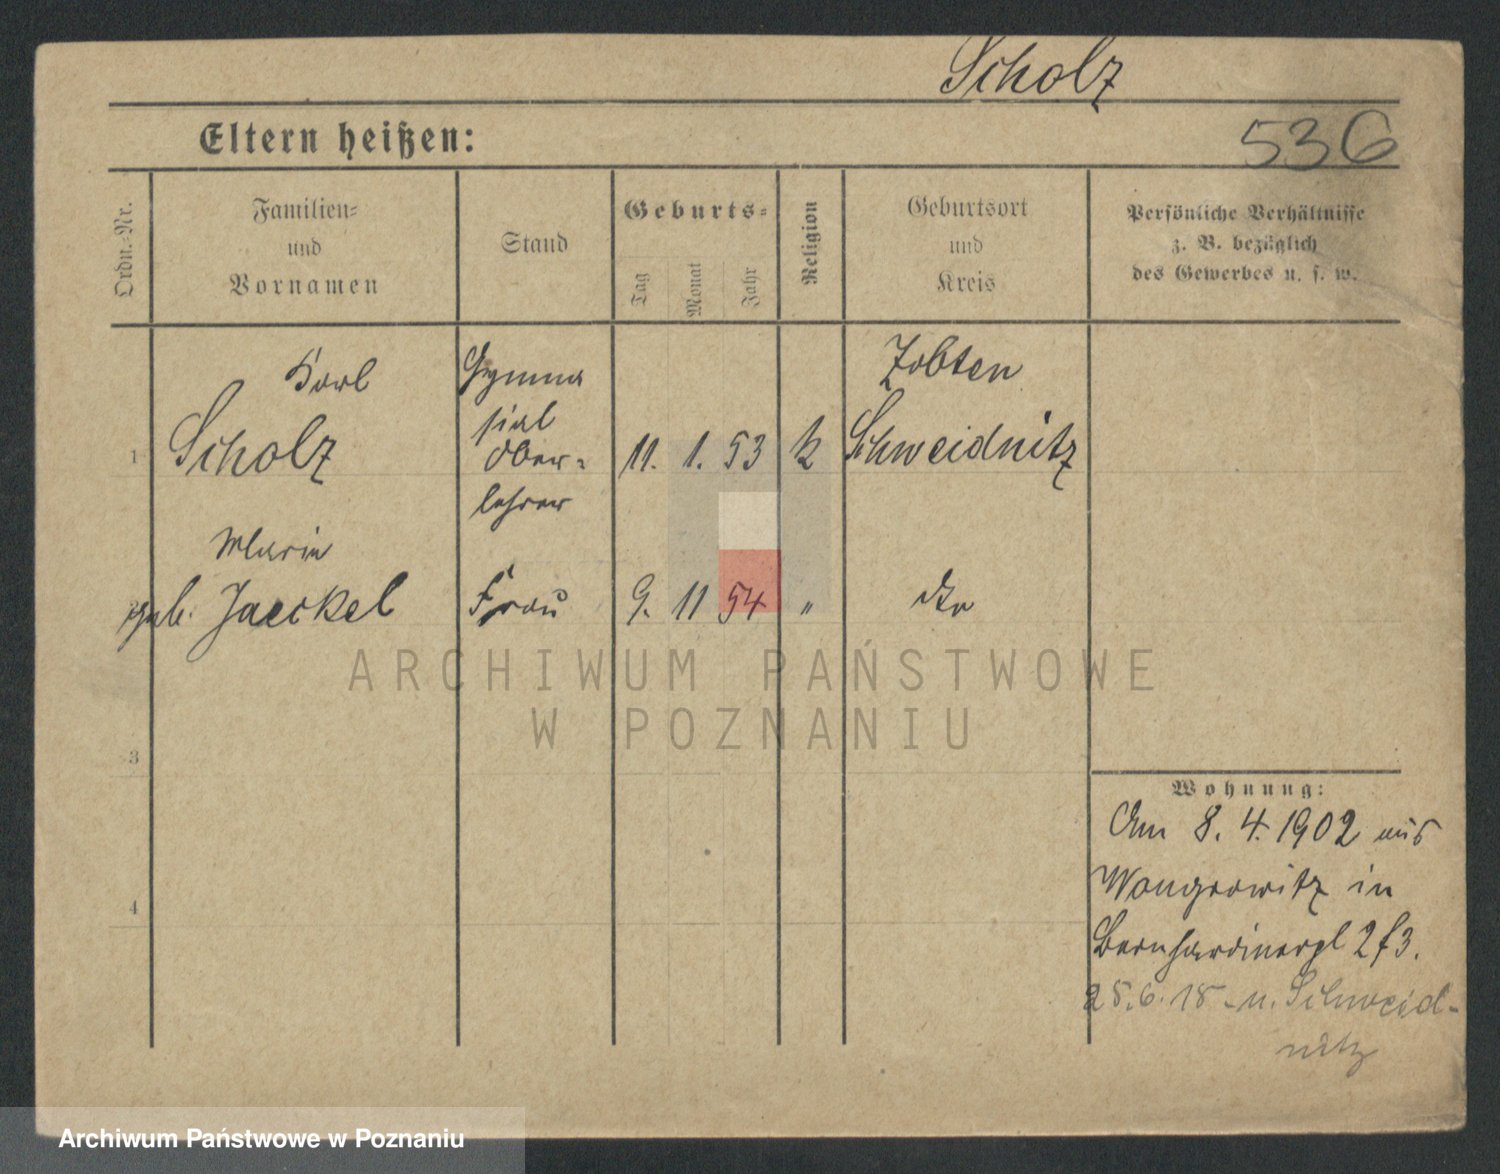 Scholz
Eltern heißen:
536
Ordn.-Nr.
Familien-
und
Vornamen
Stand
Geburts-
Tag
Monat
Jahr
Religion
Geburtsort
und
Kreis
Persönliche Verhältnisse
z. B. bezüglich
des Gewerbes u. s. w.
Karl
Scholz
Gymna
sial
Ober-
lehrer
1
11. 1. 53
k
Zobten
Schweidnitz
Marie
geb. Jaeckel
Frau
9. 11 54
"
dto
ARCHIWUM PAŃSTWOWE
W POZNANIU
3
4
Wohnung:
Am 8. 4. 1902 aus
Wongrowitz in
Bernhardinerpl 2/3.
25. 6. 18 - n. Schweid-
nitz
Archiwum Państwowe w Poznaniu